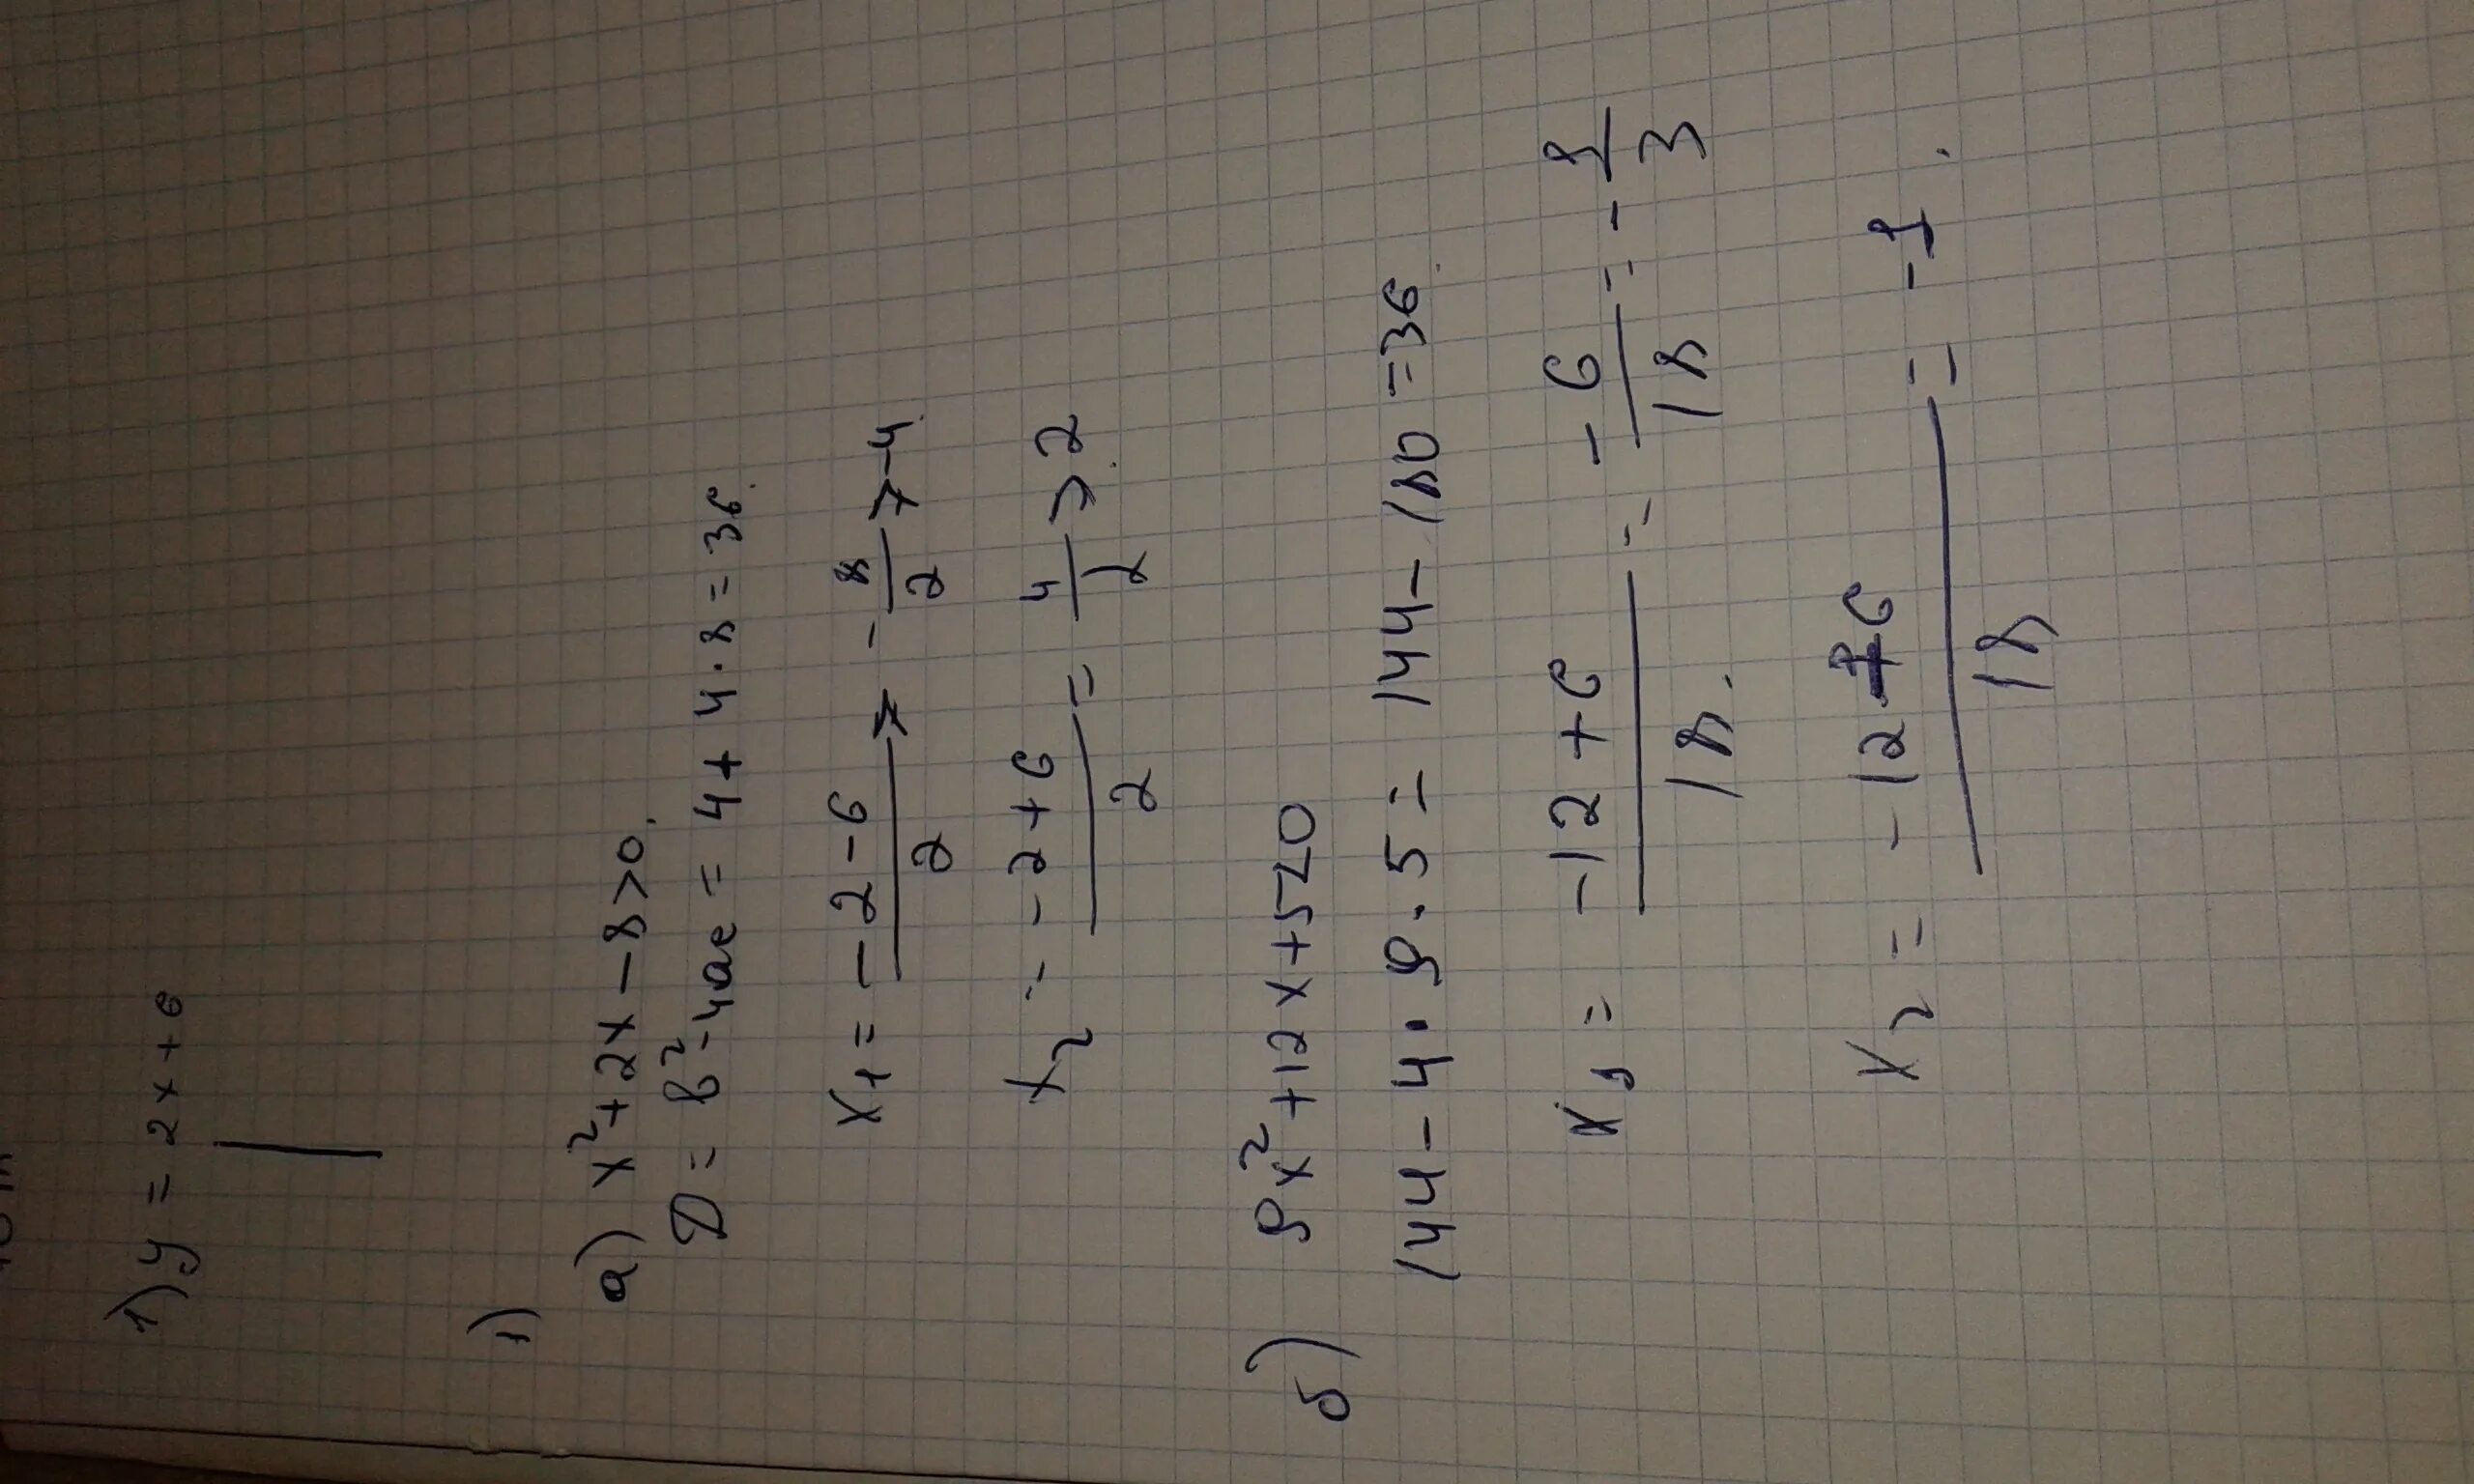 1) y = 2x + 6
1)
a) x² + 2x - 8 > 0.
D = b² - 4ac = 4 + 4 · 8 = 36.
x₁ = -2 - 6 / 2 = - 8/2 = -4.
x₂ = -2 + 6 / 2 = 4/2 = 2.
б) 9x² + 12x + 5 < 0
144 - 4 · 9 · 5 = 144 - 180 = 36.
x₁ = -12 + 6 / 18. = - 6/18 = - 1/3
x₂ = -12 - 6 / 18 = -1.